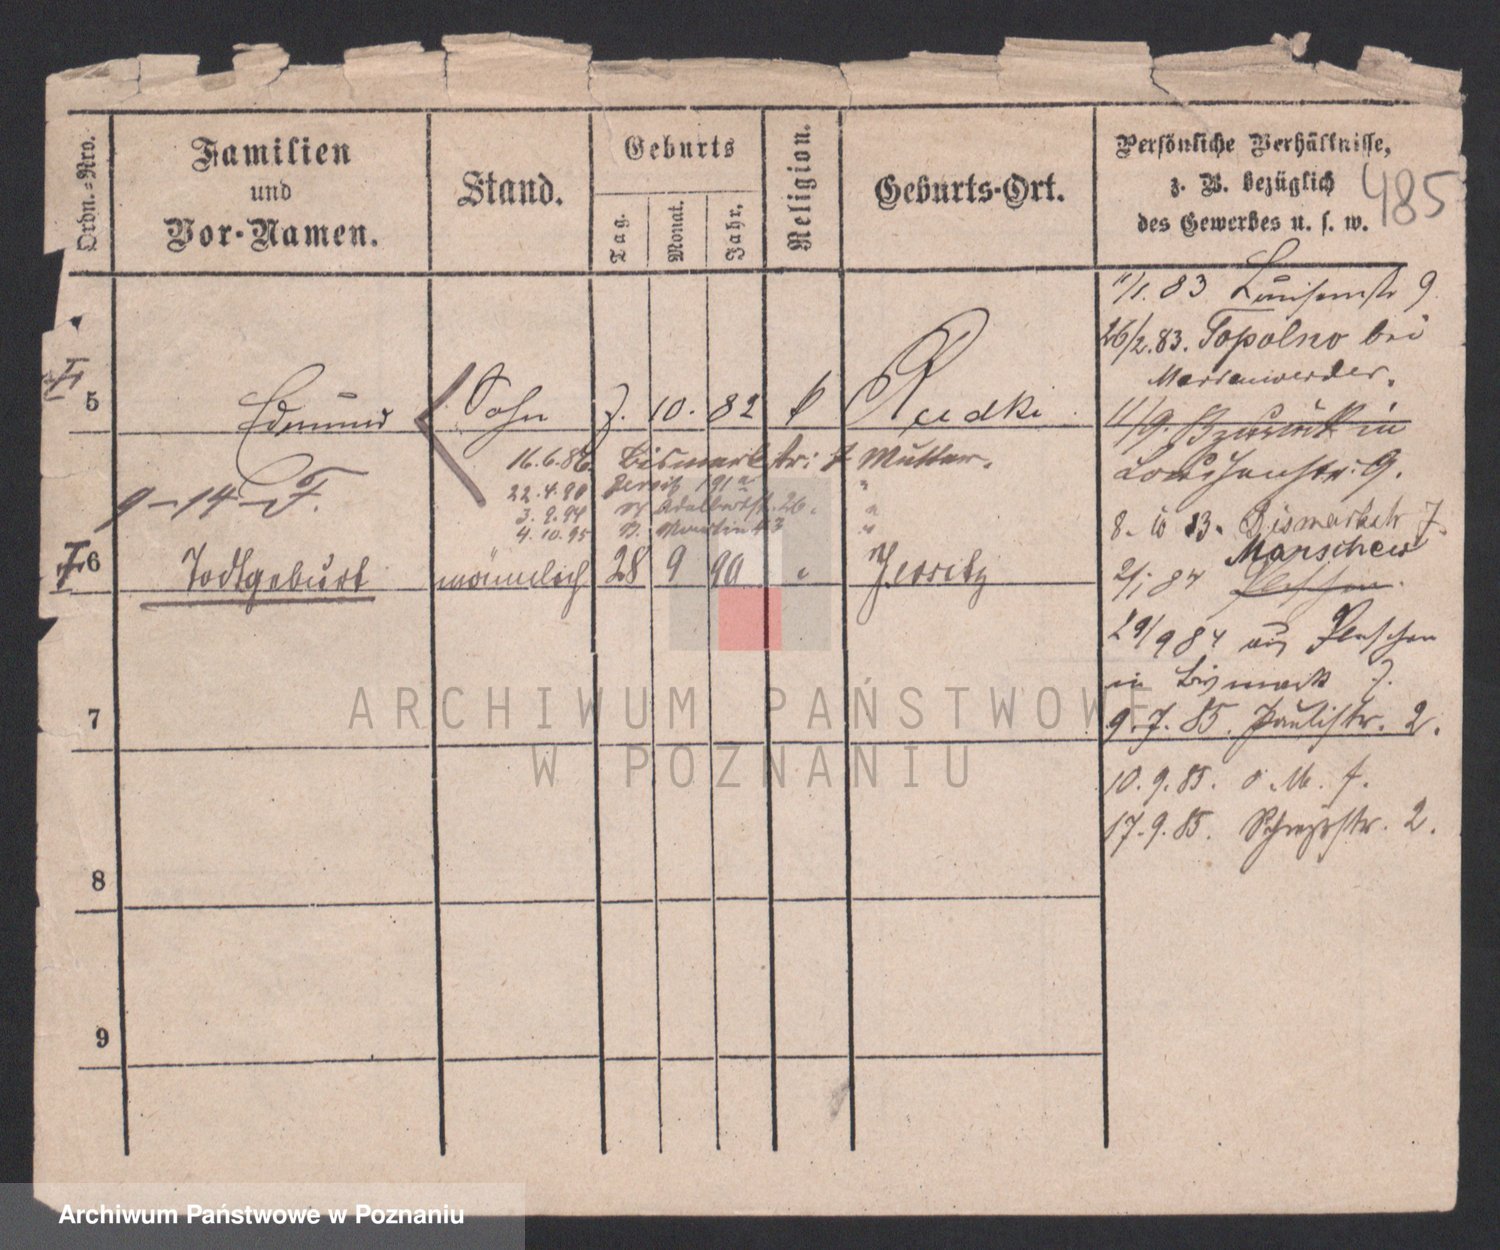 Ordn.=Nro.
Familien
und
Vor-Namen.
Stand.
Geburts
Tag.
Monat.
Jahr.
Religion.
Geburts-Ort.
Persönliche Verhältnisse,
z. B. bezüglich
des Gewerbes u. s. w.
485
5
Edmund
Sohn
7. 10. 82
Rudki
16.6.86. Bismarkstr: 7 Mutter.
22.4.90 Jersitz 191a "
3. 9. 94 Adalbertst. 26. "
4. 10. 95 St. Martin 43 "
9-14-F.
F
6
Todtgeburt
männlich
28 9 90
Jersitz
7
8
9
1/1. 83 Louisenstr 9
26/2.83. Topolno bei
Marienwerder.
11/9. Zurück in
Louisenstr. 9.
8. 10 83. Bismarkstr 7.
Marschew
2/1 84 Pleschen.
29/9 84 aus Pleschen
in Bismark 7.
9. 7. 85. Paulistr. 2.
10. 9. 85. o. M. 7.
17. 9. 85. 2.
ARCHIWUM PAŃSTWOWE
W POZNANIU
Archiwum Państwowe w Poznaniu